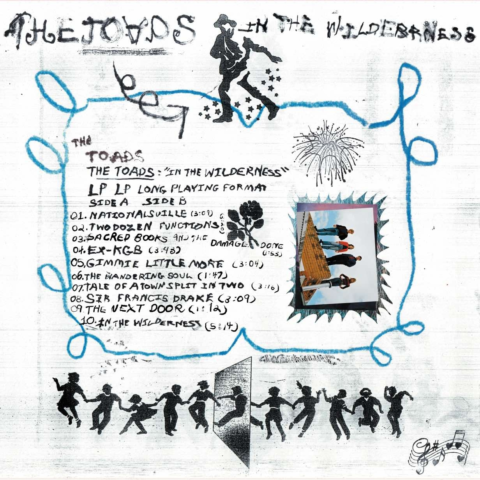 THE TOADS IN THE WILDERNESS
THE
TOADS
THE TOADS: "IN THE WILDERNESS"
LP LP LONG PLAYING FORMAT
SIDE A SIDE B
01. NATIONALSVILLE (3:07)
02. TWO DOZEN FUNCTIONS
03. SACRED BOOKS AND THE DAMAGE DONE
04. EX-KGB (3:48)
05. GIMMIE LITTLE MORE (3:04)
06. THE WANDERING SOUL (1:47)
07. TALE OF A TOWN SPLIT IN TWO (3:10)
08. SIR FRANCIS DRAKE (3:09)
09 THE NEXT DOOR (1:12)
10. IN THE WILDERNESS (5:14)